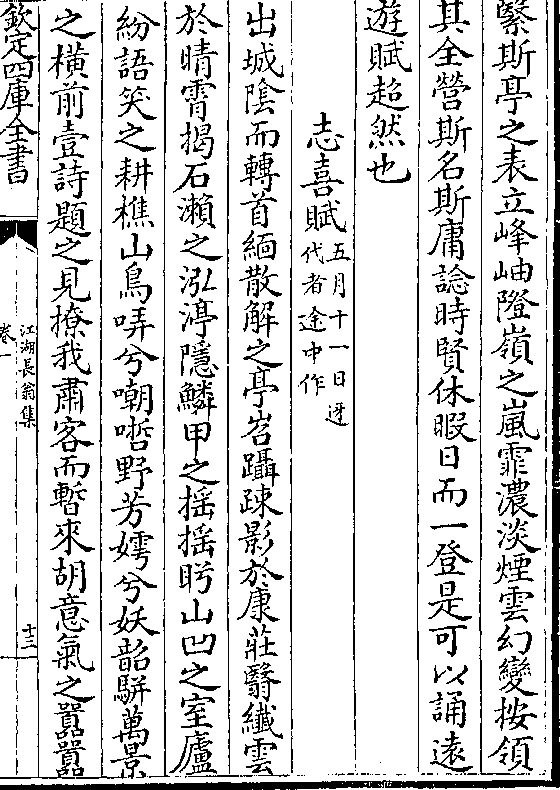 繄斯亭之表立峰岫隥嶺之嵐霏濃淡煙雲幻變按領
其全營斯名斯庸諗時賢休暇日而一登是可以誦遠
遊賦超然也
志喜賦五月十一日迓
代者途中作
出城陰而轉首緬散解之亭岧躡疎影於康莊翳纖雲
於晴霄揭石瀨之泓渟隱鱗甲之揺揺眄山凹之室廬
紛語笑之耕樵山鳥哢兮嘲哳野芳嫮兮妖韶駢萬景
之橫前壹詩題之見撩我肅客而暫來胡意氣之囂囂
欽定四庫全書
江湖長翁集
卷一
十三